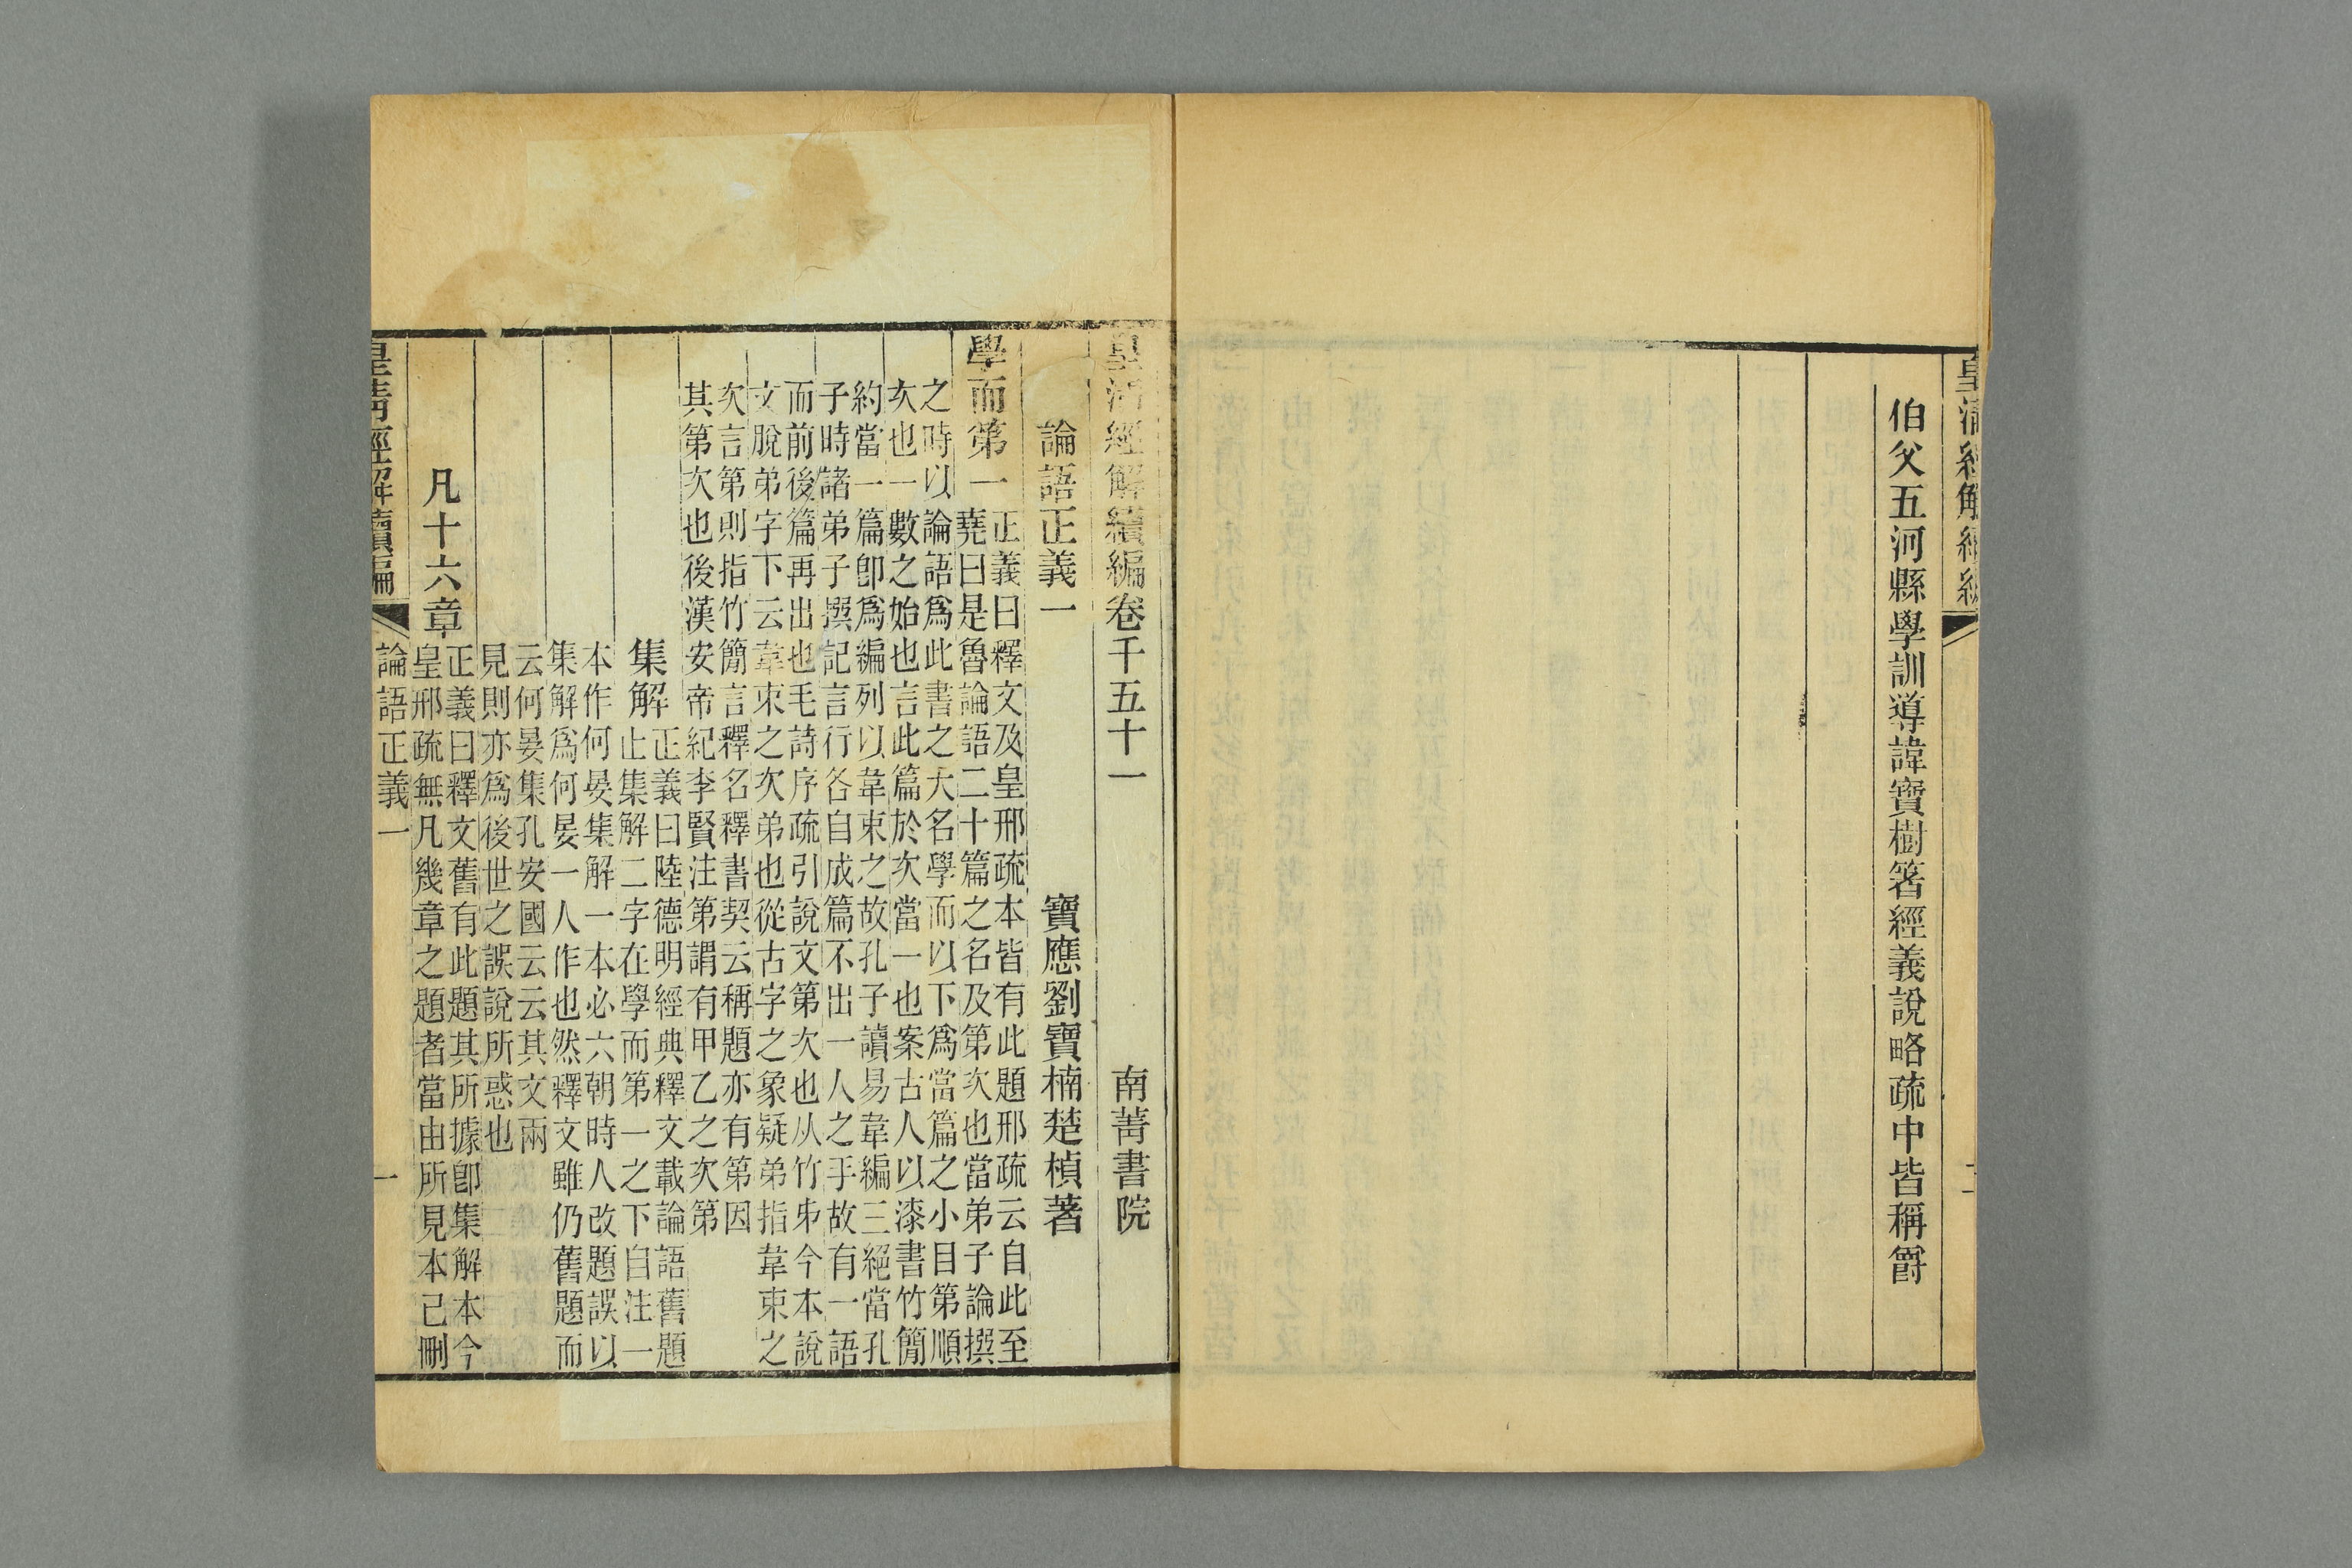 皇清經解續編
伯父五河縣學訓導諱寶樹箸經義說略疏中皆稱爵
皇清經解續編卷千五十一 南菁書院
論語正義一 寶應劉寶楠楚楨著
學而第一
正義曰釋文及皇邢疏本皆有此題邢疏云自此至
堯曰是魯論語二十篇之名及第次也當弟子論撰
之時以論語爲此書之大名學而以下爲當篇之小目第順
次也一數之始也言此篇於次當一也案古人以漆書竹簡
約當一篇卽爲編列以韋束之故孔子讀易韋編三絕當孔
子時諸弟子撰記言行各自成篇不出一人之手故有一語
而前後篇再出也毛詩序疏引說文第次也从竹弟今本說
文脫弟字下云韋束之次弟也從古字之象疑弟指韋束之
次言第則指竹簡言釋名釋書契云稱題亦有第因
其第次也後漢安帝紀李賢注第謂有甲乙之次第
集解
正義曰陸德明經典釋文載論語舊題
止集解二字在學而第一之下自注一
本作何晏集解一本必六朝時人改題誤以
集解爲何晏一人作也然釋文雖仍舊題而
云何晏集孔安國云云其文兩
見則亦爲後世之誤說所惑也
凡十六章
正義曰釋文舊有此題其所據卽集解本今
皇邢疏無凡幾章之題者當由所見本已刪
皇清經解續編 論語正義一 一